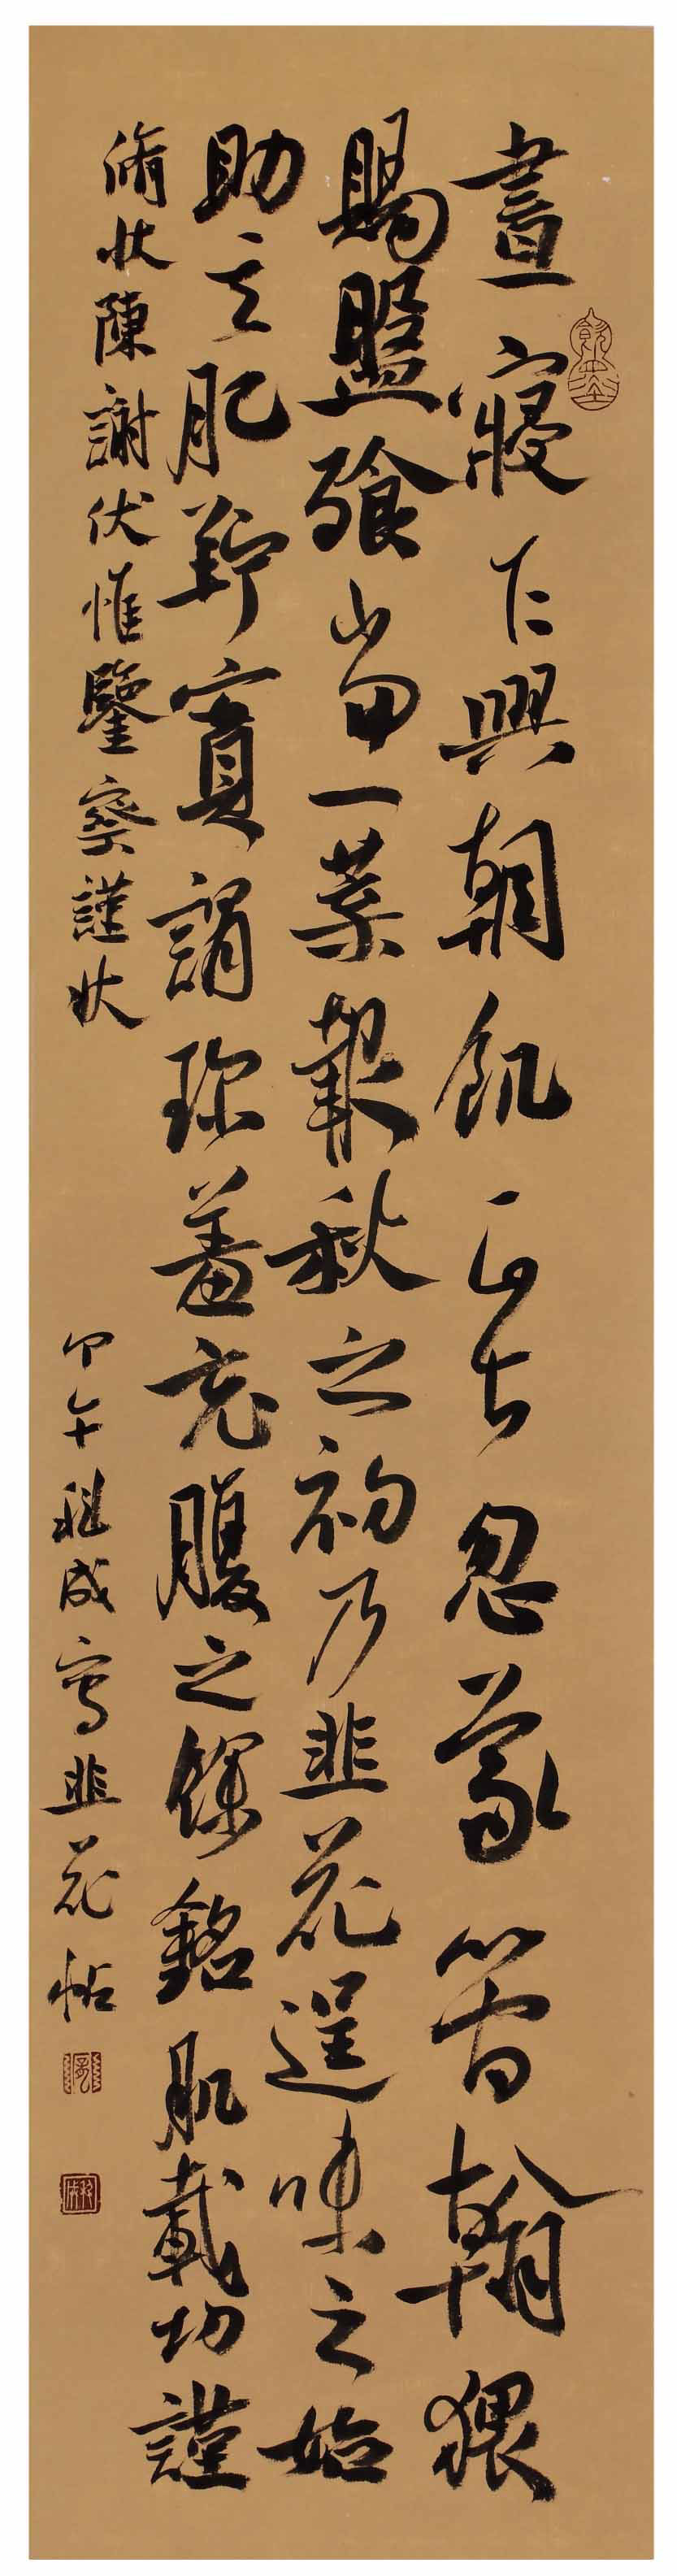 晝寢乍興朝飢正甚忽蒙簡翰猥
賜盤飱當一葉報秋之初乃韭花逞味之始
助其肥羜實謂珍羞充腹之餘銘肌載切謹
脩狀陳謝伏惟鑒察謹狀
甲午成寫韭花帖